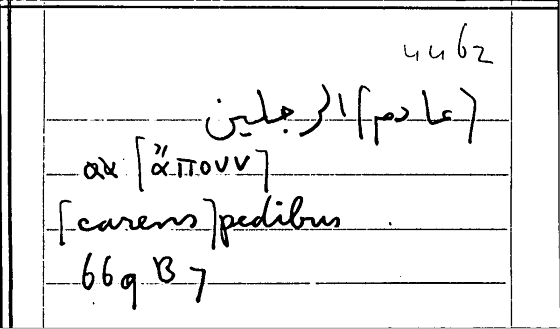 4462
[عادم] الرجلين
αα [ἄπουν]
[carens] pedibus
669 B 7